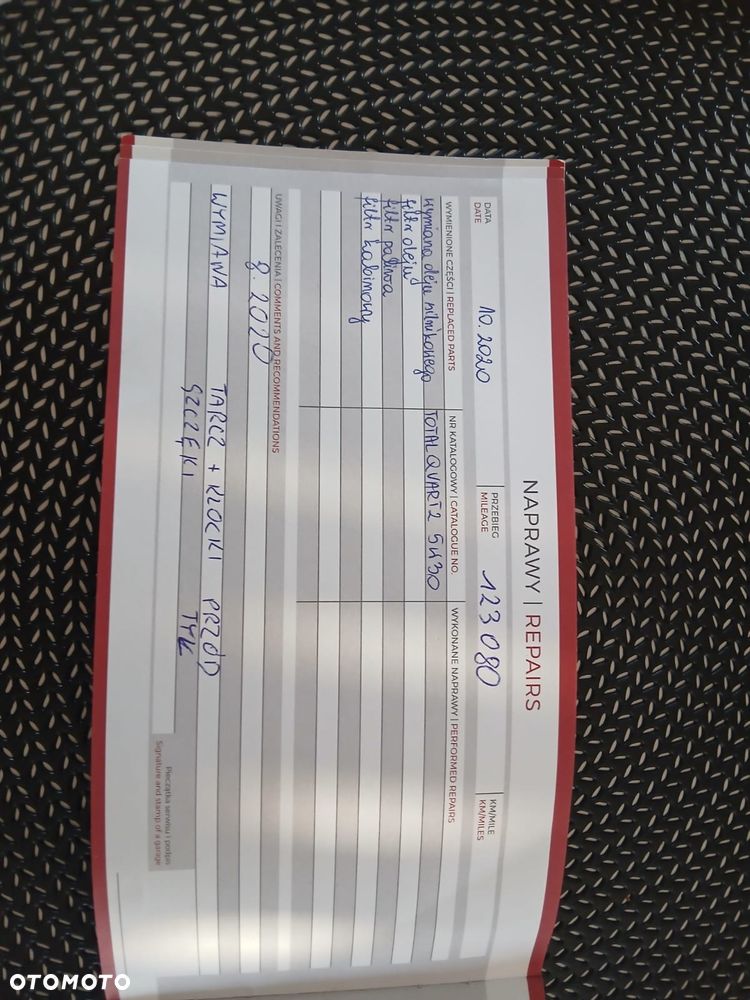 NAPRAWY | REPAIRS
DATA
DATE
10. 2020
PRZEBIEG
MILEAGE
123 080
KM/MILE
KM/MILES
WYMIENIONE CZĘŚCI | REPLACED PARTS
NR KATALOGOWY | CATALOGUE NO.
WYKONANE NAPRAWY | PERFORMED REPAIRS
wymiana oleju silnikowego TOTAL QUARTZ 5W30
filtr oleju
filtr paliwa
filtr kabinowy
UWAGI I ZALECENIA | COMMENTS AND RECOMMENDATIONS
8. 2020
WYMIANA TARCZ + KLOCKI PRZÓD
SZCZĘKI TYŁ
Pieczątka serwisu i podpis
Signature and stamp of a garage
OTOMOTO